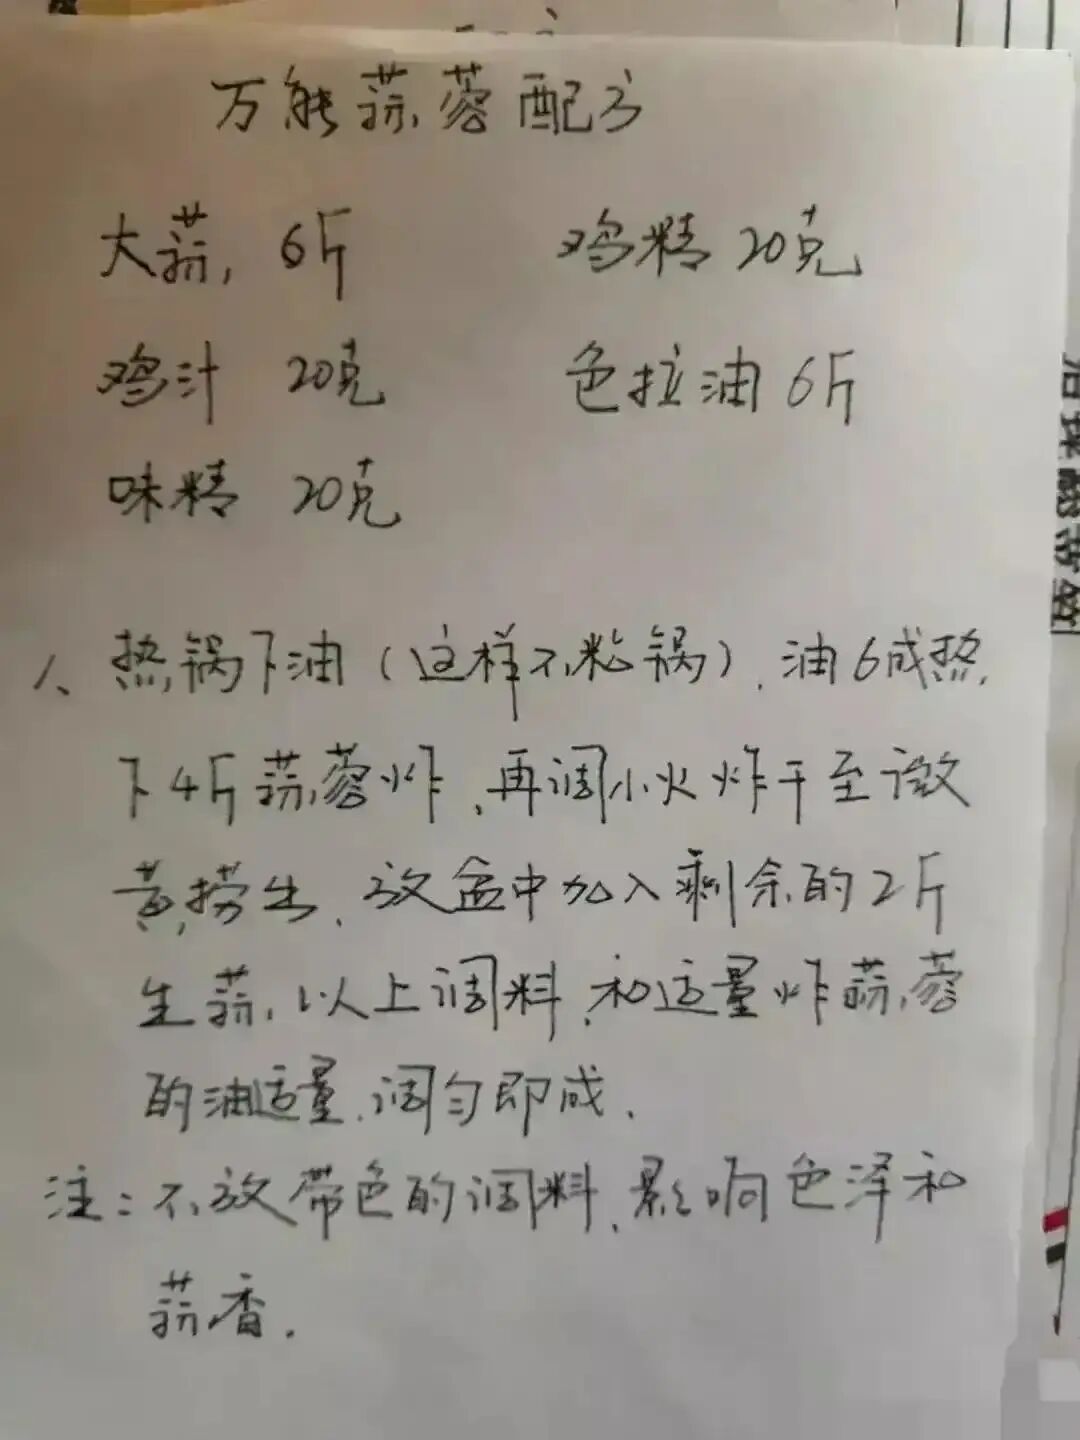 万能蒜蓉配方
大蒜, 6斤 鸡精 20克
鸡汁 20克 色拉油 6斤
味精 20克
1、热锅下油(这样不粘错).油6成热,
下4斤蒜蓉炸、再调小火炸干至微
黄捞出、放盆中加入剩余的2斤
生蒜,以上调料、和适量炸蒜蓉
的油适量、调匀即成.
注:不放带色的调料、影响色泽和
蒜香.